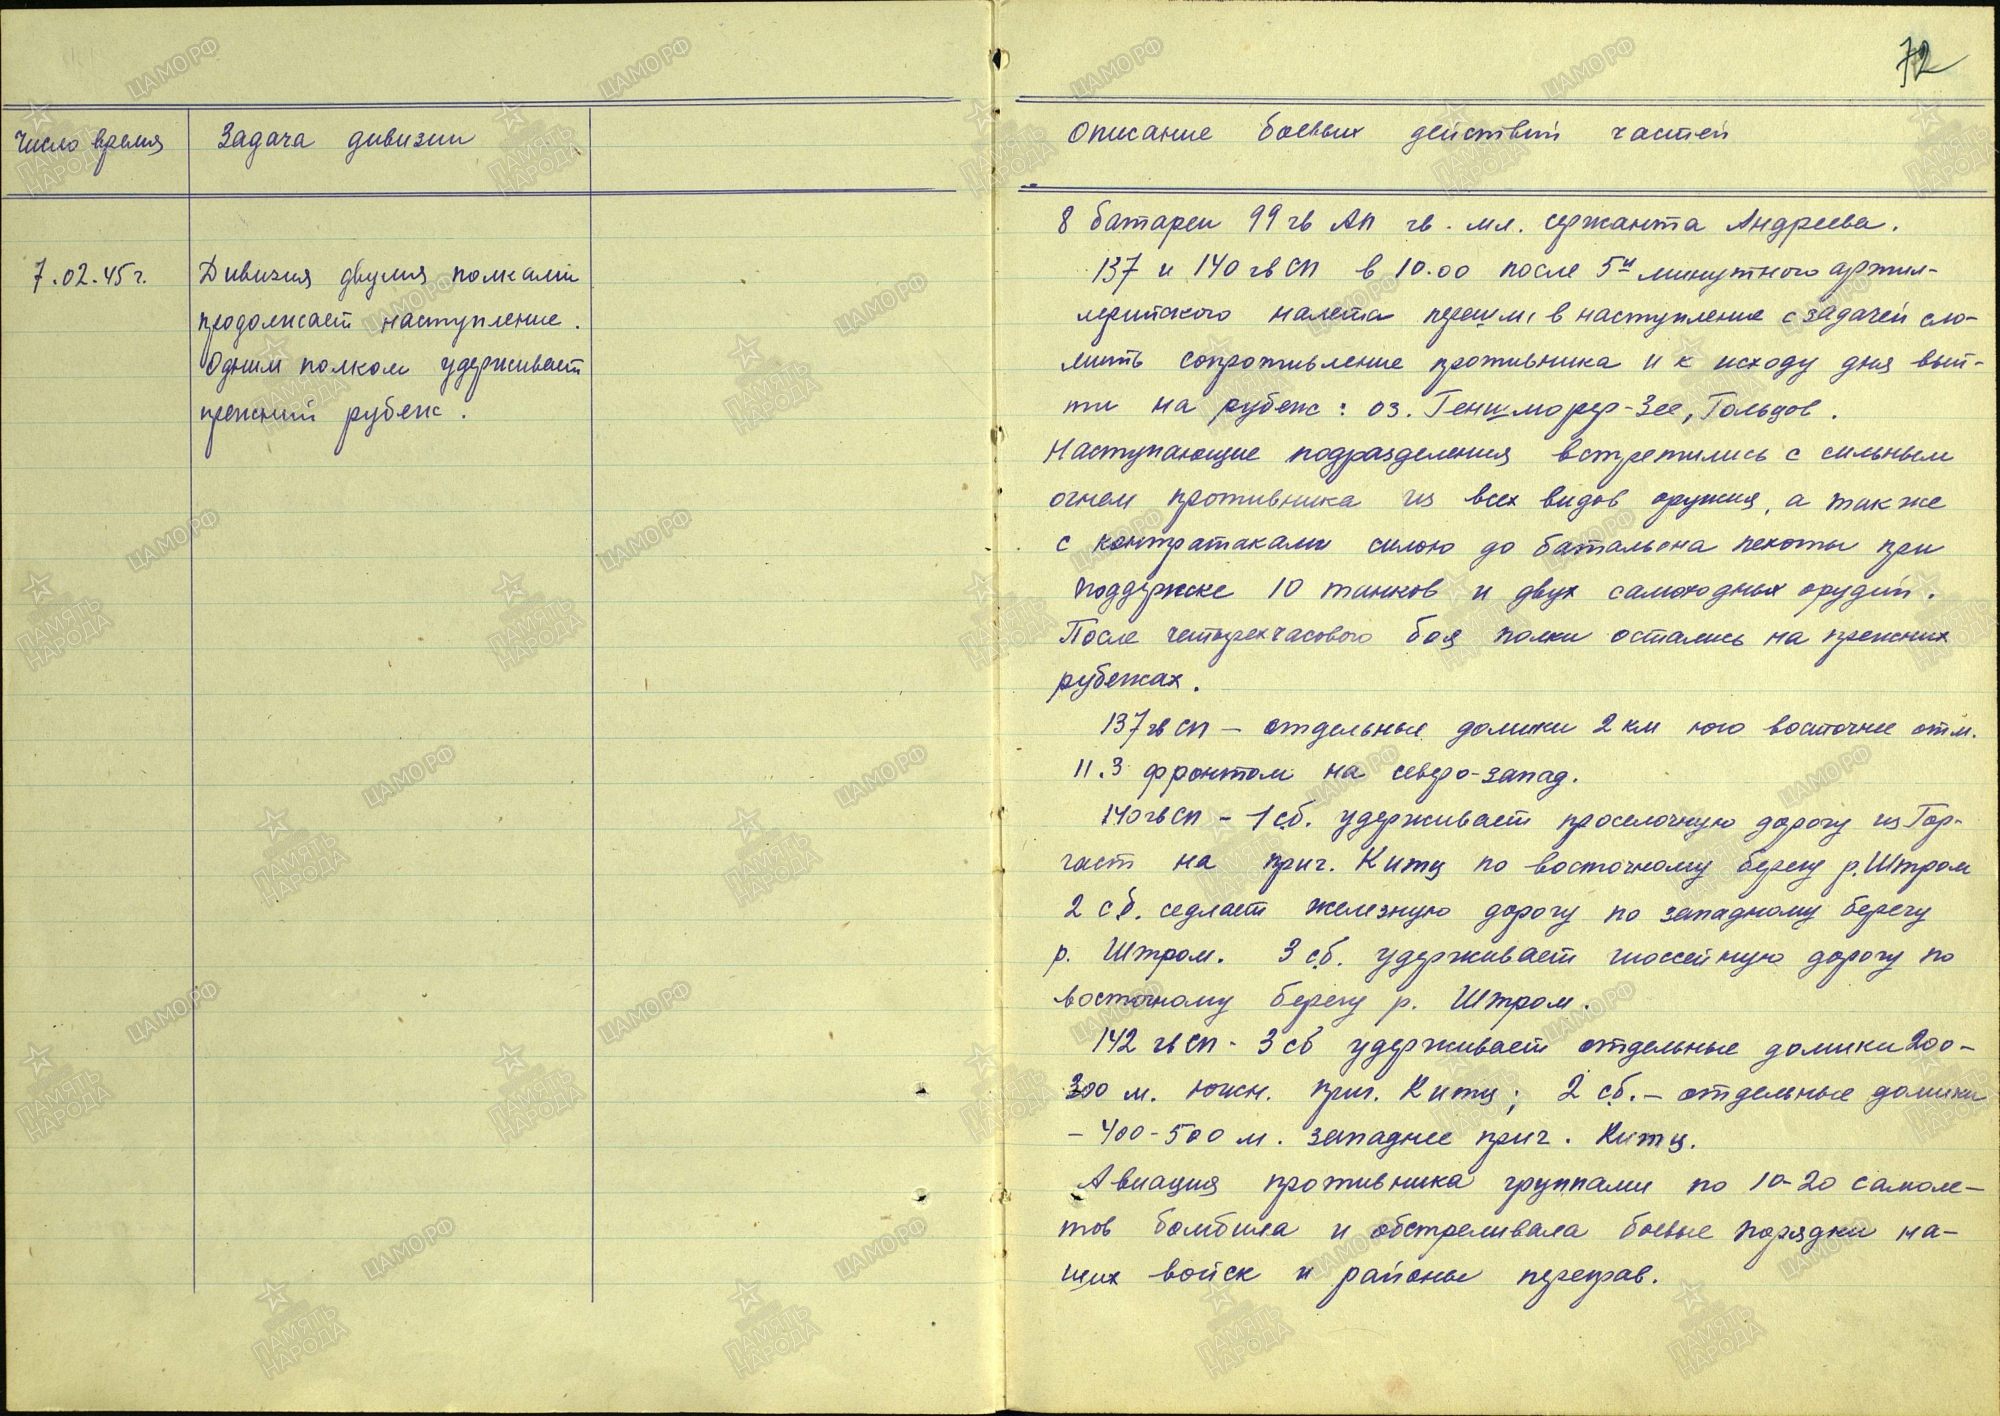 72
Число время
Задача дивизии
Описание боевых действий частей
7.02.45г.
Дивизия двумя полками
продолжает наступление.
Одним полком удерживает
прежний рубеж.
8 батареи 99 гв АП гв. мл. сержанта Андреева.
137 и 140 гв СП в 10.00 после 5и минутного артил-
лерийского налета перешли в наступление с задачей сло-
мить сопротивление противника и к исходу дня вый-
ти на рубеж: оз. Геншморер-Зее, Гольцов.
Наступающие подразделения встретились с сильным
огнем противника из всех видов оружия, а также
с контратаками силою до батальона пехоты при
поддержке 10 танков и двух самоходных орудий.
После четырехчасового боя полки остались на прежних
рубежах.
137 гв СП – отдельные домики 2 км юго восточнее отм.
11.3 фронтом на северо-запад.
140 гв СП – 1 сб. удерживает проселочную дорогу из Гор-
гаст на приг. Китц по восточному берегу р. Штром
2 сб. седлает железную дорогу по западному берегу
р. Штром. 3 сб. удерживает шоссейную дорогу по
восточному берегу р. Штром.
142 гв СП - 3 сб удерживает отдельные домики 200-
300 м. южн. приг. Китц; 2 сб. – отдельные домики
– 400-500 м. западнее приг. Китц.
Авиация противника группами по 10-20 самоле-
тов бомбила и обстреливала боевые порядки на-
ших войск и районы переправ.
ЦАМО РФ
ПАМЯТЬ
НАРОДА